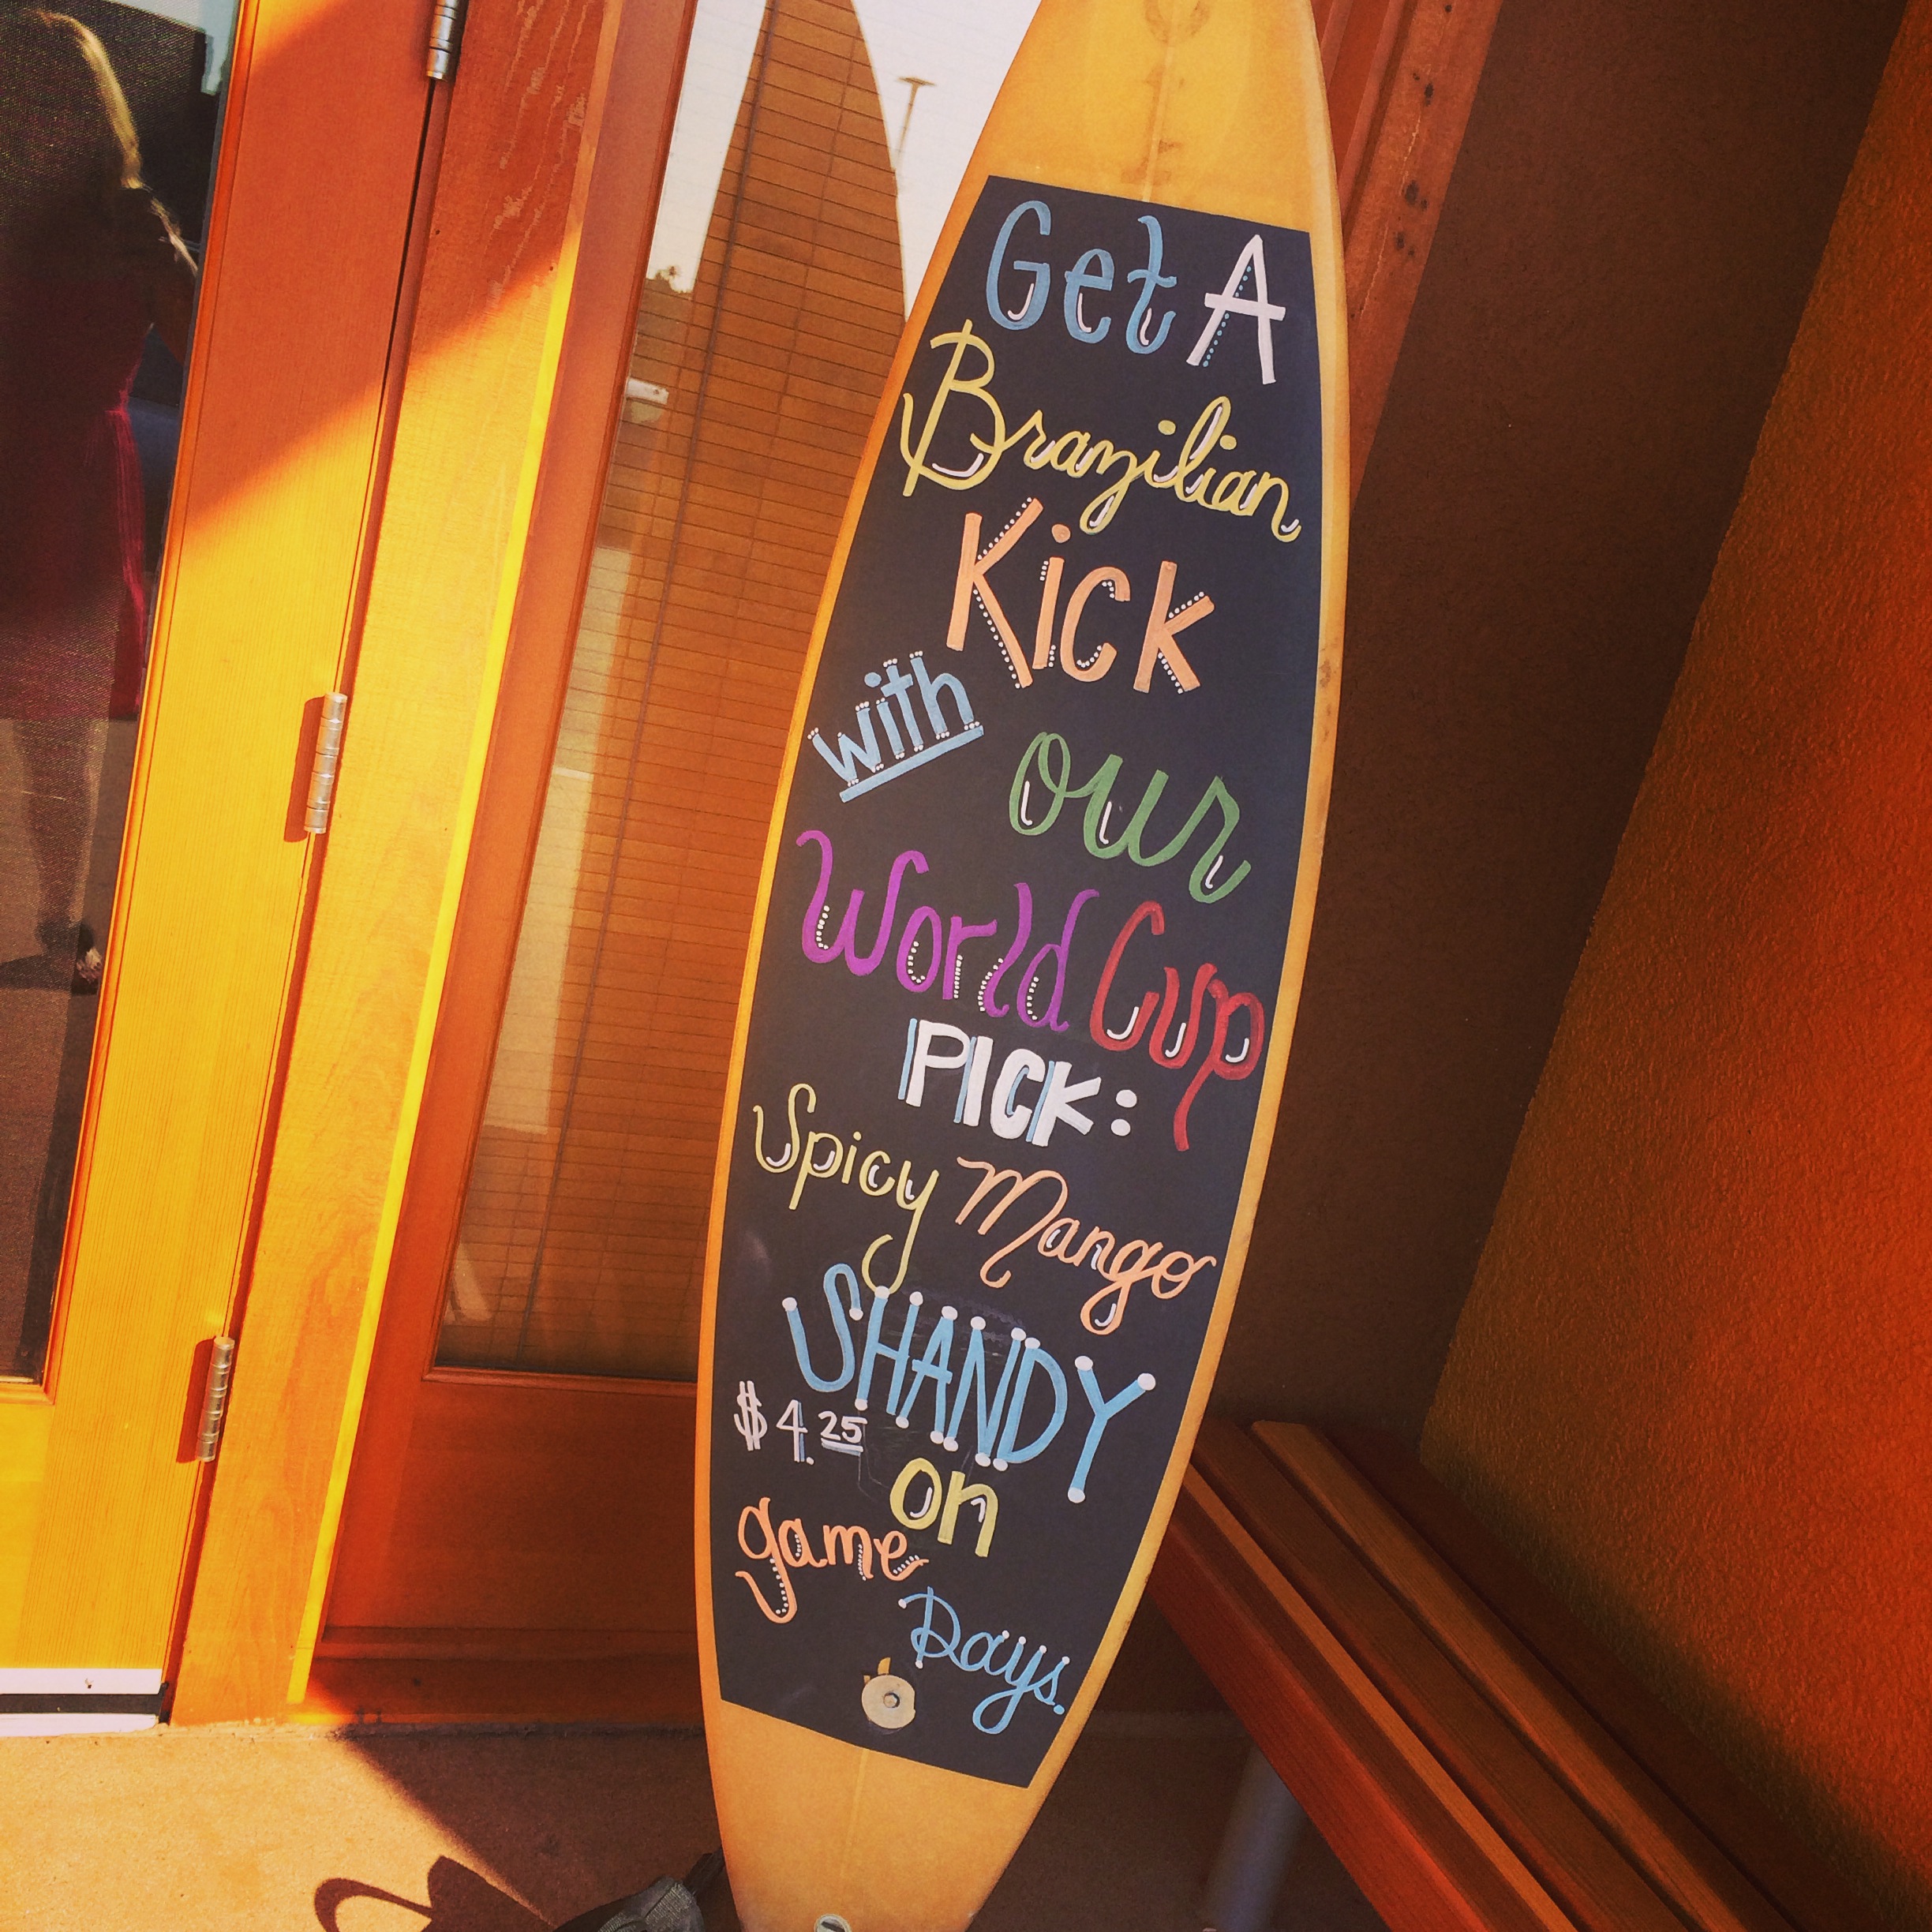 Get A
Brazilian
Kick
with our
World Cup
PICK:
Spicy Mango
SHANDY
$4.25
on
game
Days.